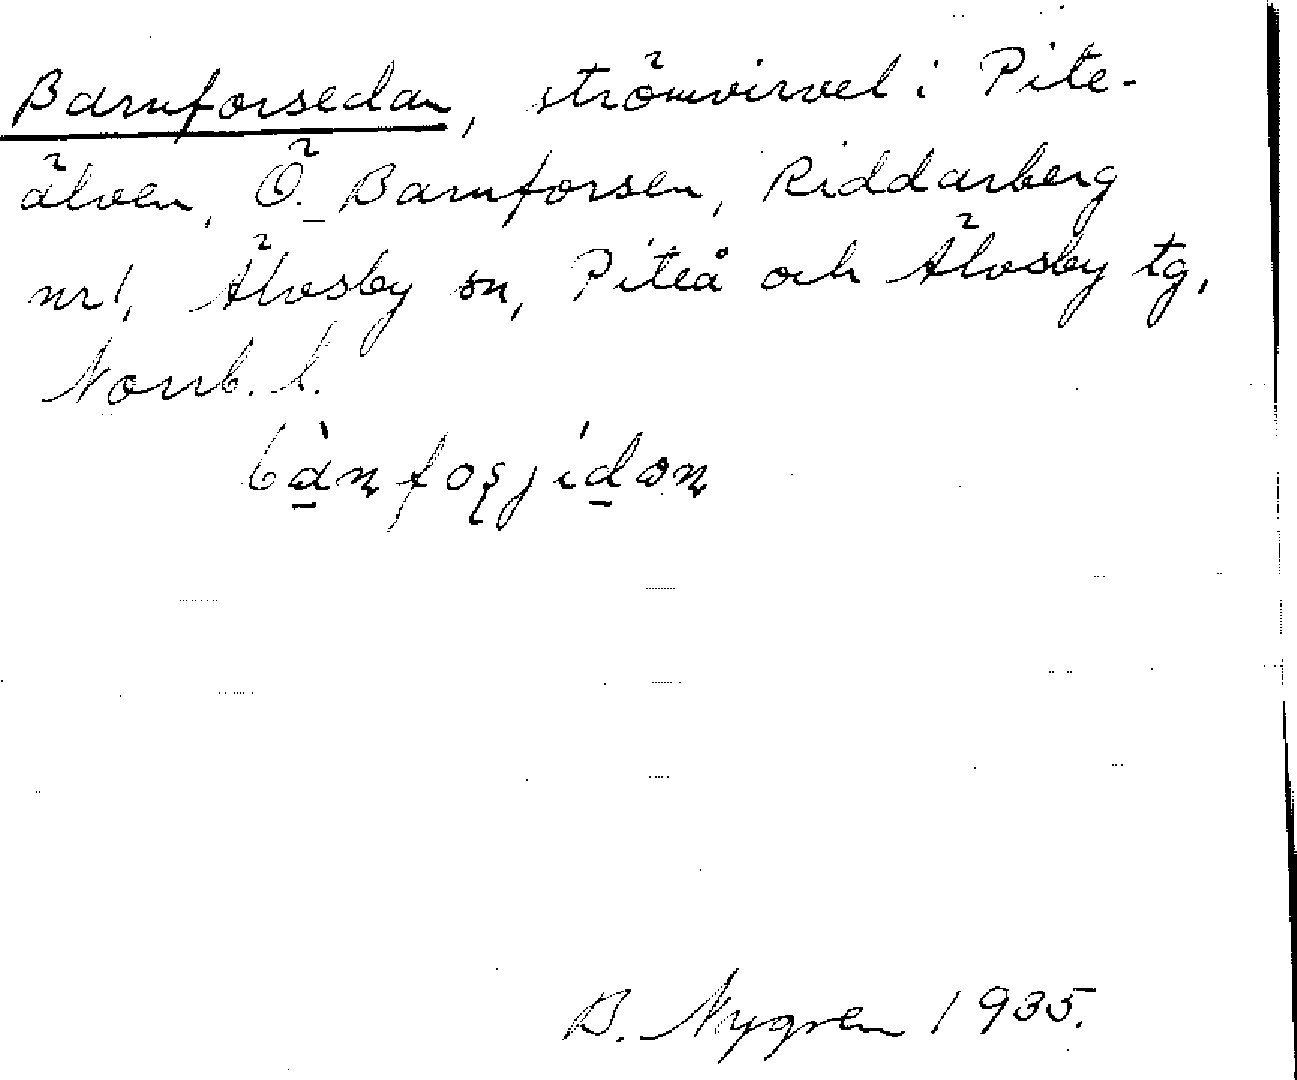 Barnforsedan, strömvirvel i Pite-
älven, Ö. Barnforsen, Riddarberg
nr 1, Älvsby sn, Piteå och Älvsby tg,
Norrb. l.
B. Nygren 1935.